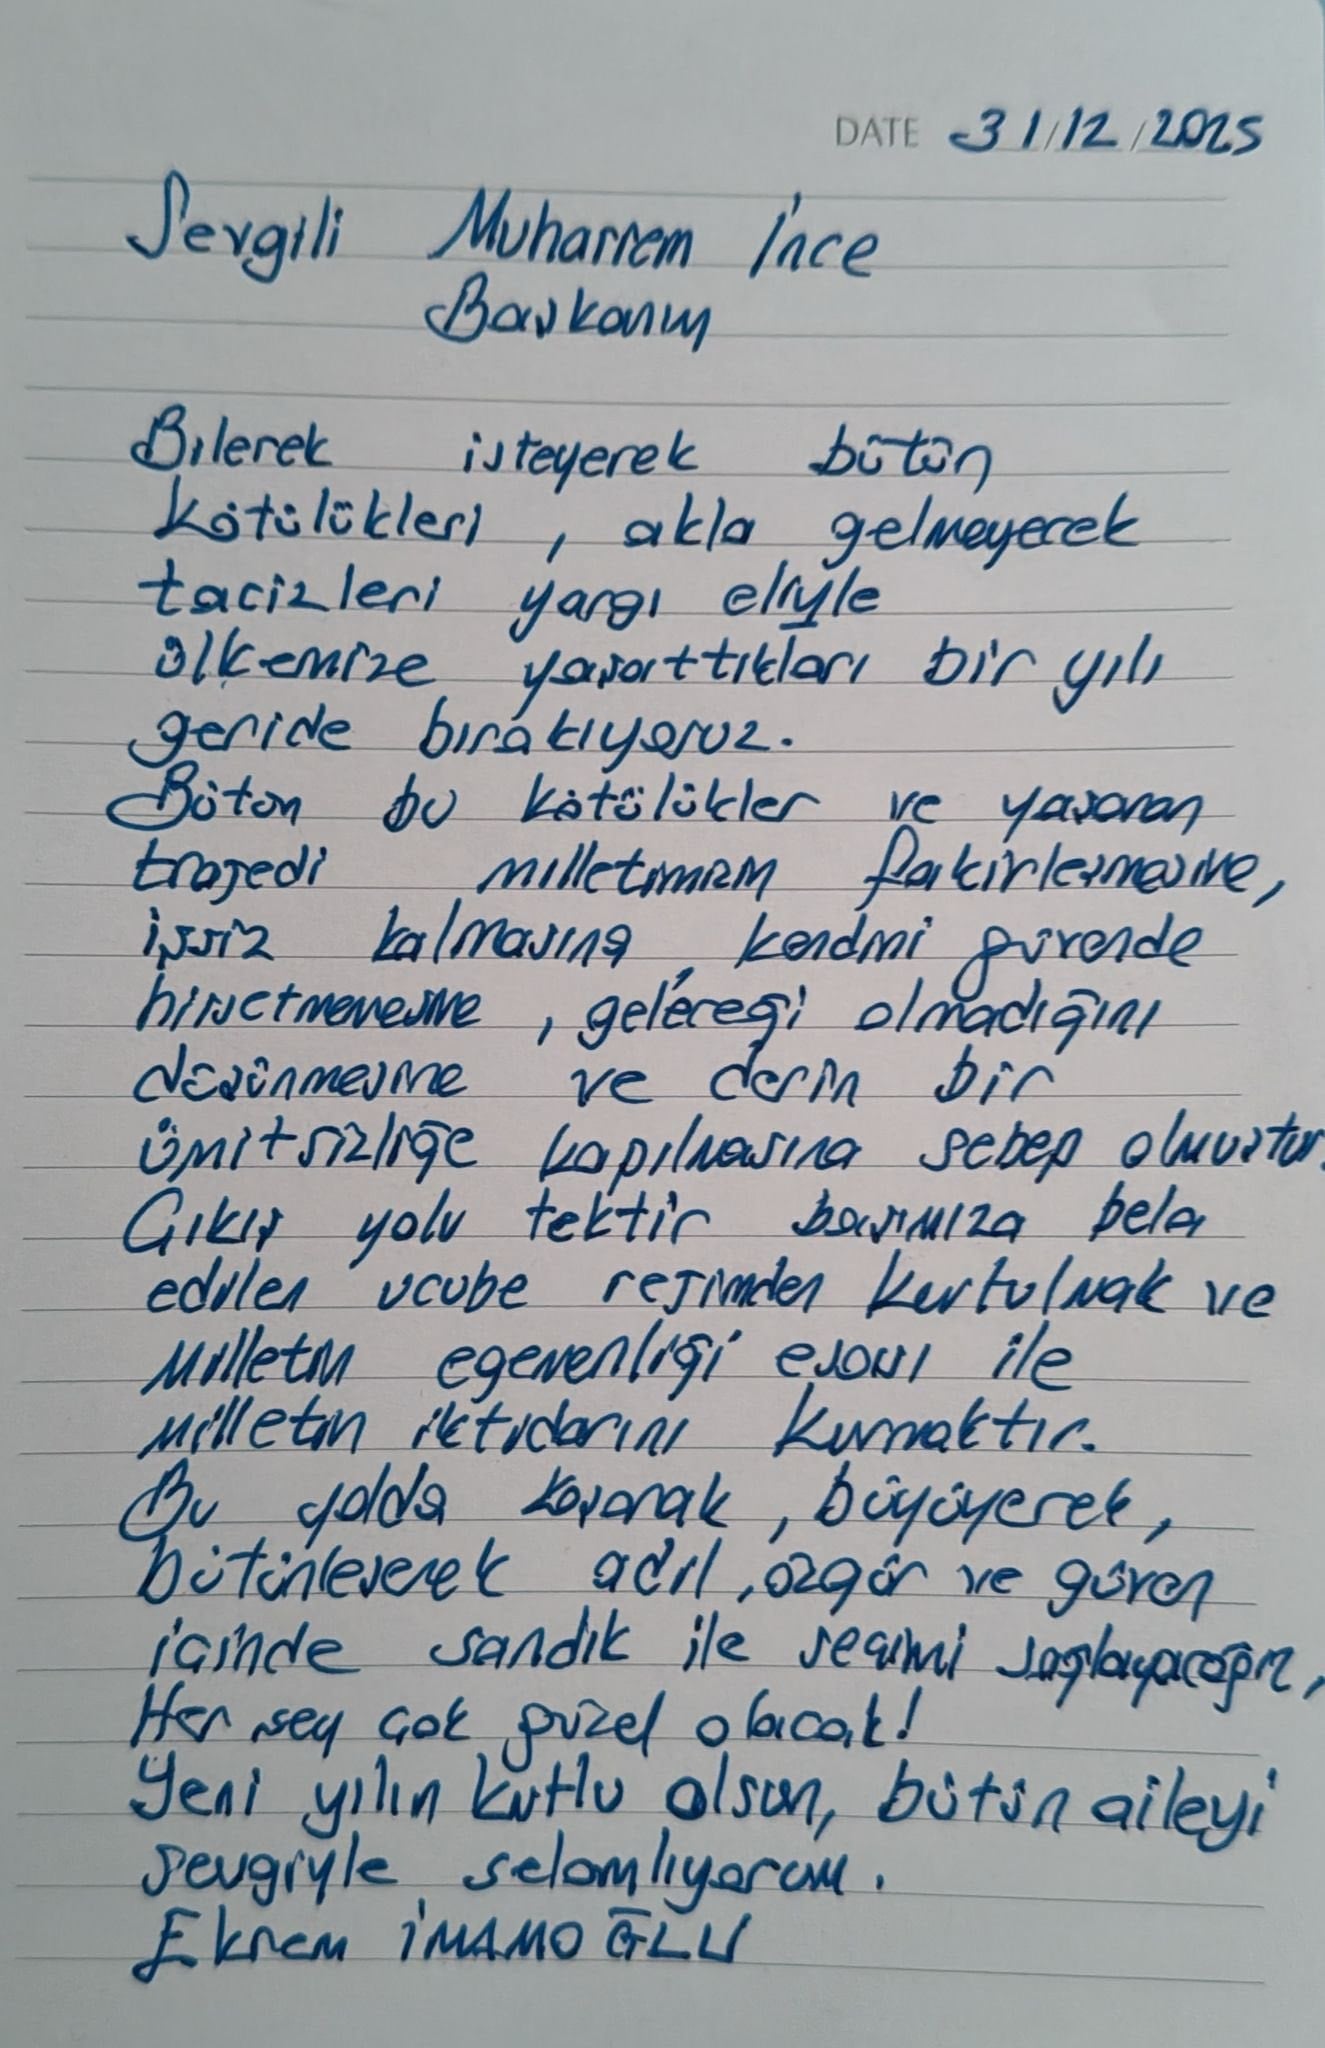 DATE 31/12/2025
Sevgili Muharrem İnce
Başkanım
Bilerek isteyerek bütün
kötülükleri, akla gelmeyecek
tacizleri yargı eliyle
ülkemize yaşattıkları bir yılı
geride bırakıyoruz.
Bütün bu kötülükler ve yaşanan
trajedi milletimizin fakirleşmesine,
işsiz kalmasına, kendini güvende
hissetmemesine, geleceği olmadığını
düşünmesine ve derin bir
ümitsizliğe kapılmasına sebep olmuştur.
Çıkış yolu tektir başımıza bela
edilen ucube rejimden kurtulmak ve
milletin egemenliği esası ile
milletin iktidarını kurmaktır.
Bu yolda koşarak, büyüyerek,
bütünleşerek adil, özgür ve güven
içinde sandık ile seçimi sağlayacağız,
Her şey çok güzel olacak!
Yeni yılın kutlu olsun, bütün aileyi
sevgiyle selamlıyorum.
Ekrem İMAMOĞLU